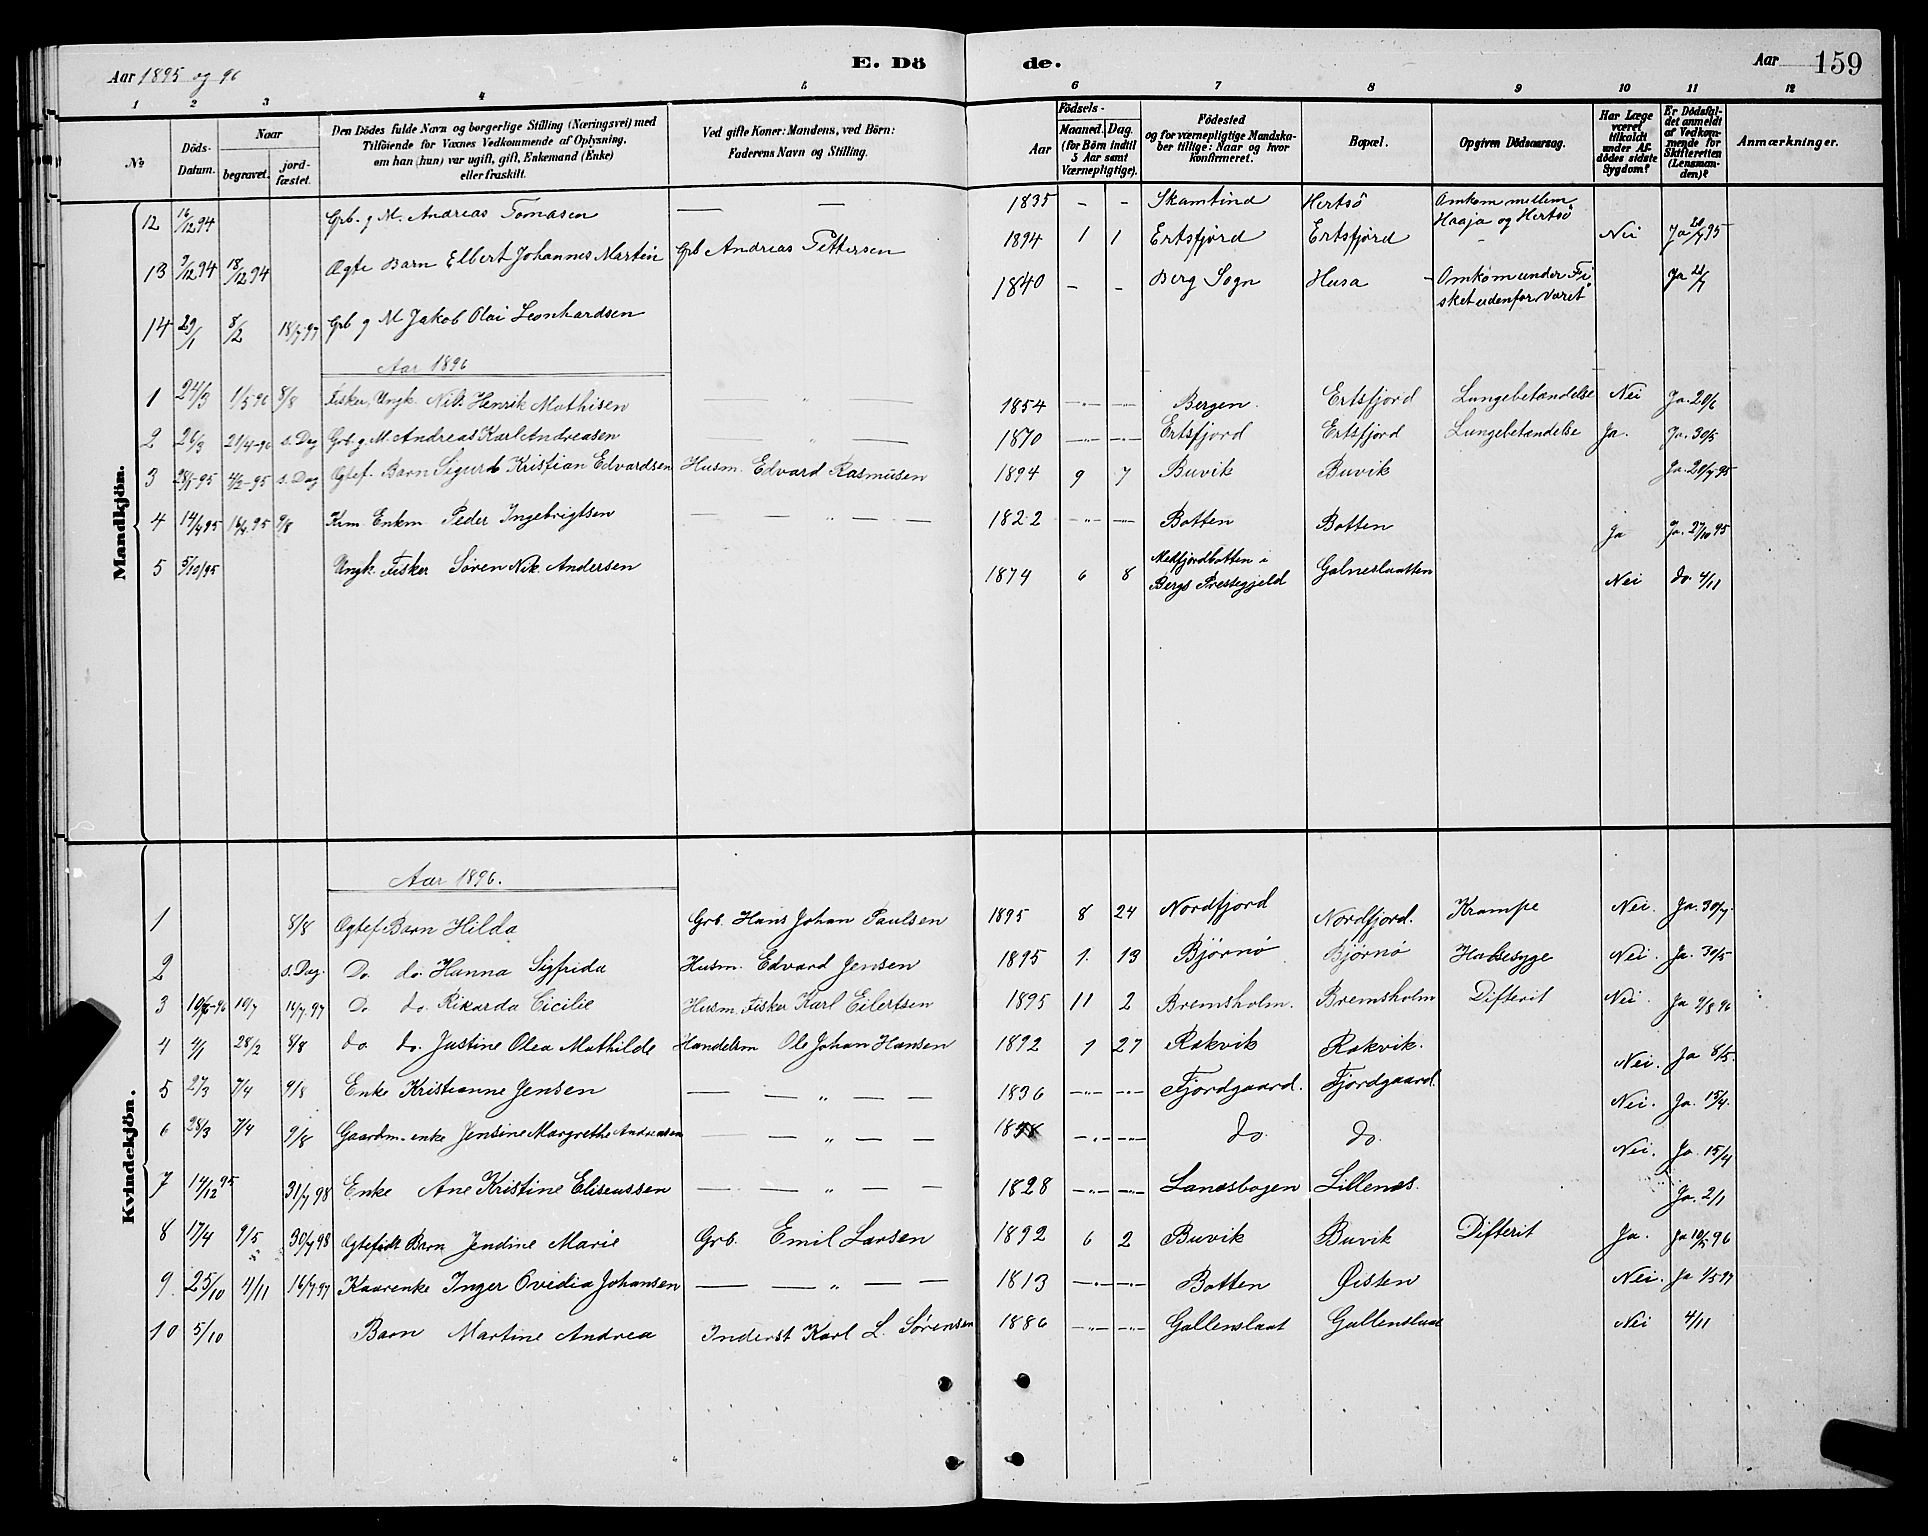 Aar 1895 og 96 E. Dö de. Aar 159
1 2 3 4 5 6 7 8 9 10 11 12
No Döds-Datum. Naar begravet. jord-fæstet. Den Dödes fulde Navn og borgerlige Stilling (Næringsvei) med Tilföiende for Voxnes Vedkommende af Oplysning, om han (hun) var ugift, gift, Enkemand (Enke) eller fraskilt. Ved gifte Koner: Mandens, ved Börn: Faderens Navn og Stilling. Födsels- Aar Maaned. Dag. (for Börn indtil 5 Aar samt Værnepligtige). Födested og for værnepligtige Mandskaber tillige: Naar og hvor konfirmeret. Bopæl. Opgiven Dödsaarsag. Har Læge været tilkaldt under Afdödes sidste Sygdom? Er Dödsfaldet anmeldt af Vedkommende for Skifteretten (Lensmanden)? Anmærkninger.
Mandkjön.
12 16/12 94 Grb. g M. Andreas Tomasen — — 1835 - - Skamtind Hertsö Omkom mellem Haaja og Hertsö
13 9/12 94 18/12 94 Ægte Barn Elbert Johannes Martin Grb Andreas Pettersen 1894 1 1 Ertsfjörd Ertsfjörd - Nei Ja 20/7 95
14 29/1 8/2 18/7 97 Grb g M Jakob Olai Leonhardsen 1840 - - Berg Sogn Husa - Omkom under Fisket udenfor Været Ja
Aar 1896
1 24/3 1/5 96 8/8 Fisker, Ungk. Nils Henrik Mathisen 1854 Bergen. Ertsfjord Lungebetændelse Nei Ja. 20/6
2 26/3 21/4-96 s. Dag Grb. g. M. Andreas Karl Andreasen 1870 Ertsfjord Ertsfjord Lungebetændelse Ja. Ja. 30/5
3 28/1-95 4/2-95 s. Dag Ægtef. Barn Sigurd Kristian Edvardsen Husm. Edvard Rasmusen 1894 9 7 Buvik Buvik Ja. 20/7 95
4 14/4 95 16/4 95 9/8 Krm. Enkm Peder Ingebrigtsen — — „ — — 1822 Botten Botten Ja Ja. 27/10 95
5 5/10/95 Ungk. Fisker Sören Nik. Andersen 1874 6 8 Medfjordbotten i Bergs Prestegjeld Galneslaatten Nei do. 4/11
Kvindekjön.
Aar 1896.
1 8/8 Ægtef Barn Hilda Grb. Hans Johan Paulsen 1895 8 24 Nordfjord Nordfjord. Krampe Nei. Ja. 30/7.
2 s. Dag. Do do. Hanna Sigfrida Husm. Edvard Jensen 1895 1. 13 Bjørnø Bjørnø Halsesyge Nei. Ja. 30/5
3 10/6-96 10/7 16/7 97 Do do. Rikarda Cicilie Husm. Fisker Karl Eilertsen 1895 11 2 Bremsholm. Bremsholm Difterit Nei Ja 9/8 96
4 4/1 28/2 8/8 do do. Justine Olea Mathilde Handelsm Ole Johan Hansen 1892 1 27 Rakvik Rakvik. Nei. Ja 8/5.
5 27/3 7/4 9/8 Enke Kristianne Jensen — — „ — — 1836 Fjordgaard. Fjordgaard. Nei. Ja. 15/4.
6 28/3 7/4 9/8 Gaardm. enke Jensine Margrethe Andreasen — — „ — — do. do. Nei. Ja. 15/4
7 14/12 95 31/7 98 Enke Ane Kristine Eliseussen — — „ — — 1828 Landsbogen Lillenes. Ja. 2/1
8 17/4 9/5 30/7 98 Ægtefødt Barn Jendine Marie Grb. Emil Larsen 1892 6 2 Buvik Buvik Difterit Ja. Ja 10/5 96
9. 25/10 4/11 16/7 97 Kaarenke Inger Ovidia Johansen — — „ — — 1813 Botten Øisten Nei. Ja 1/5 97
10 5/10 Barn Martine Andrea Inderst Karl L. Sørensen 1886 Gallenslaat Gallenslaat Nei 4/11